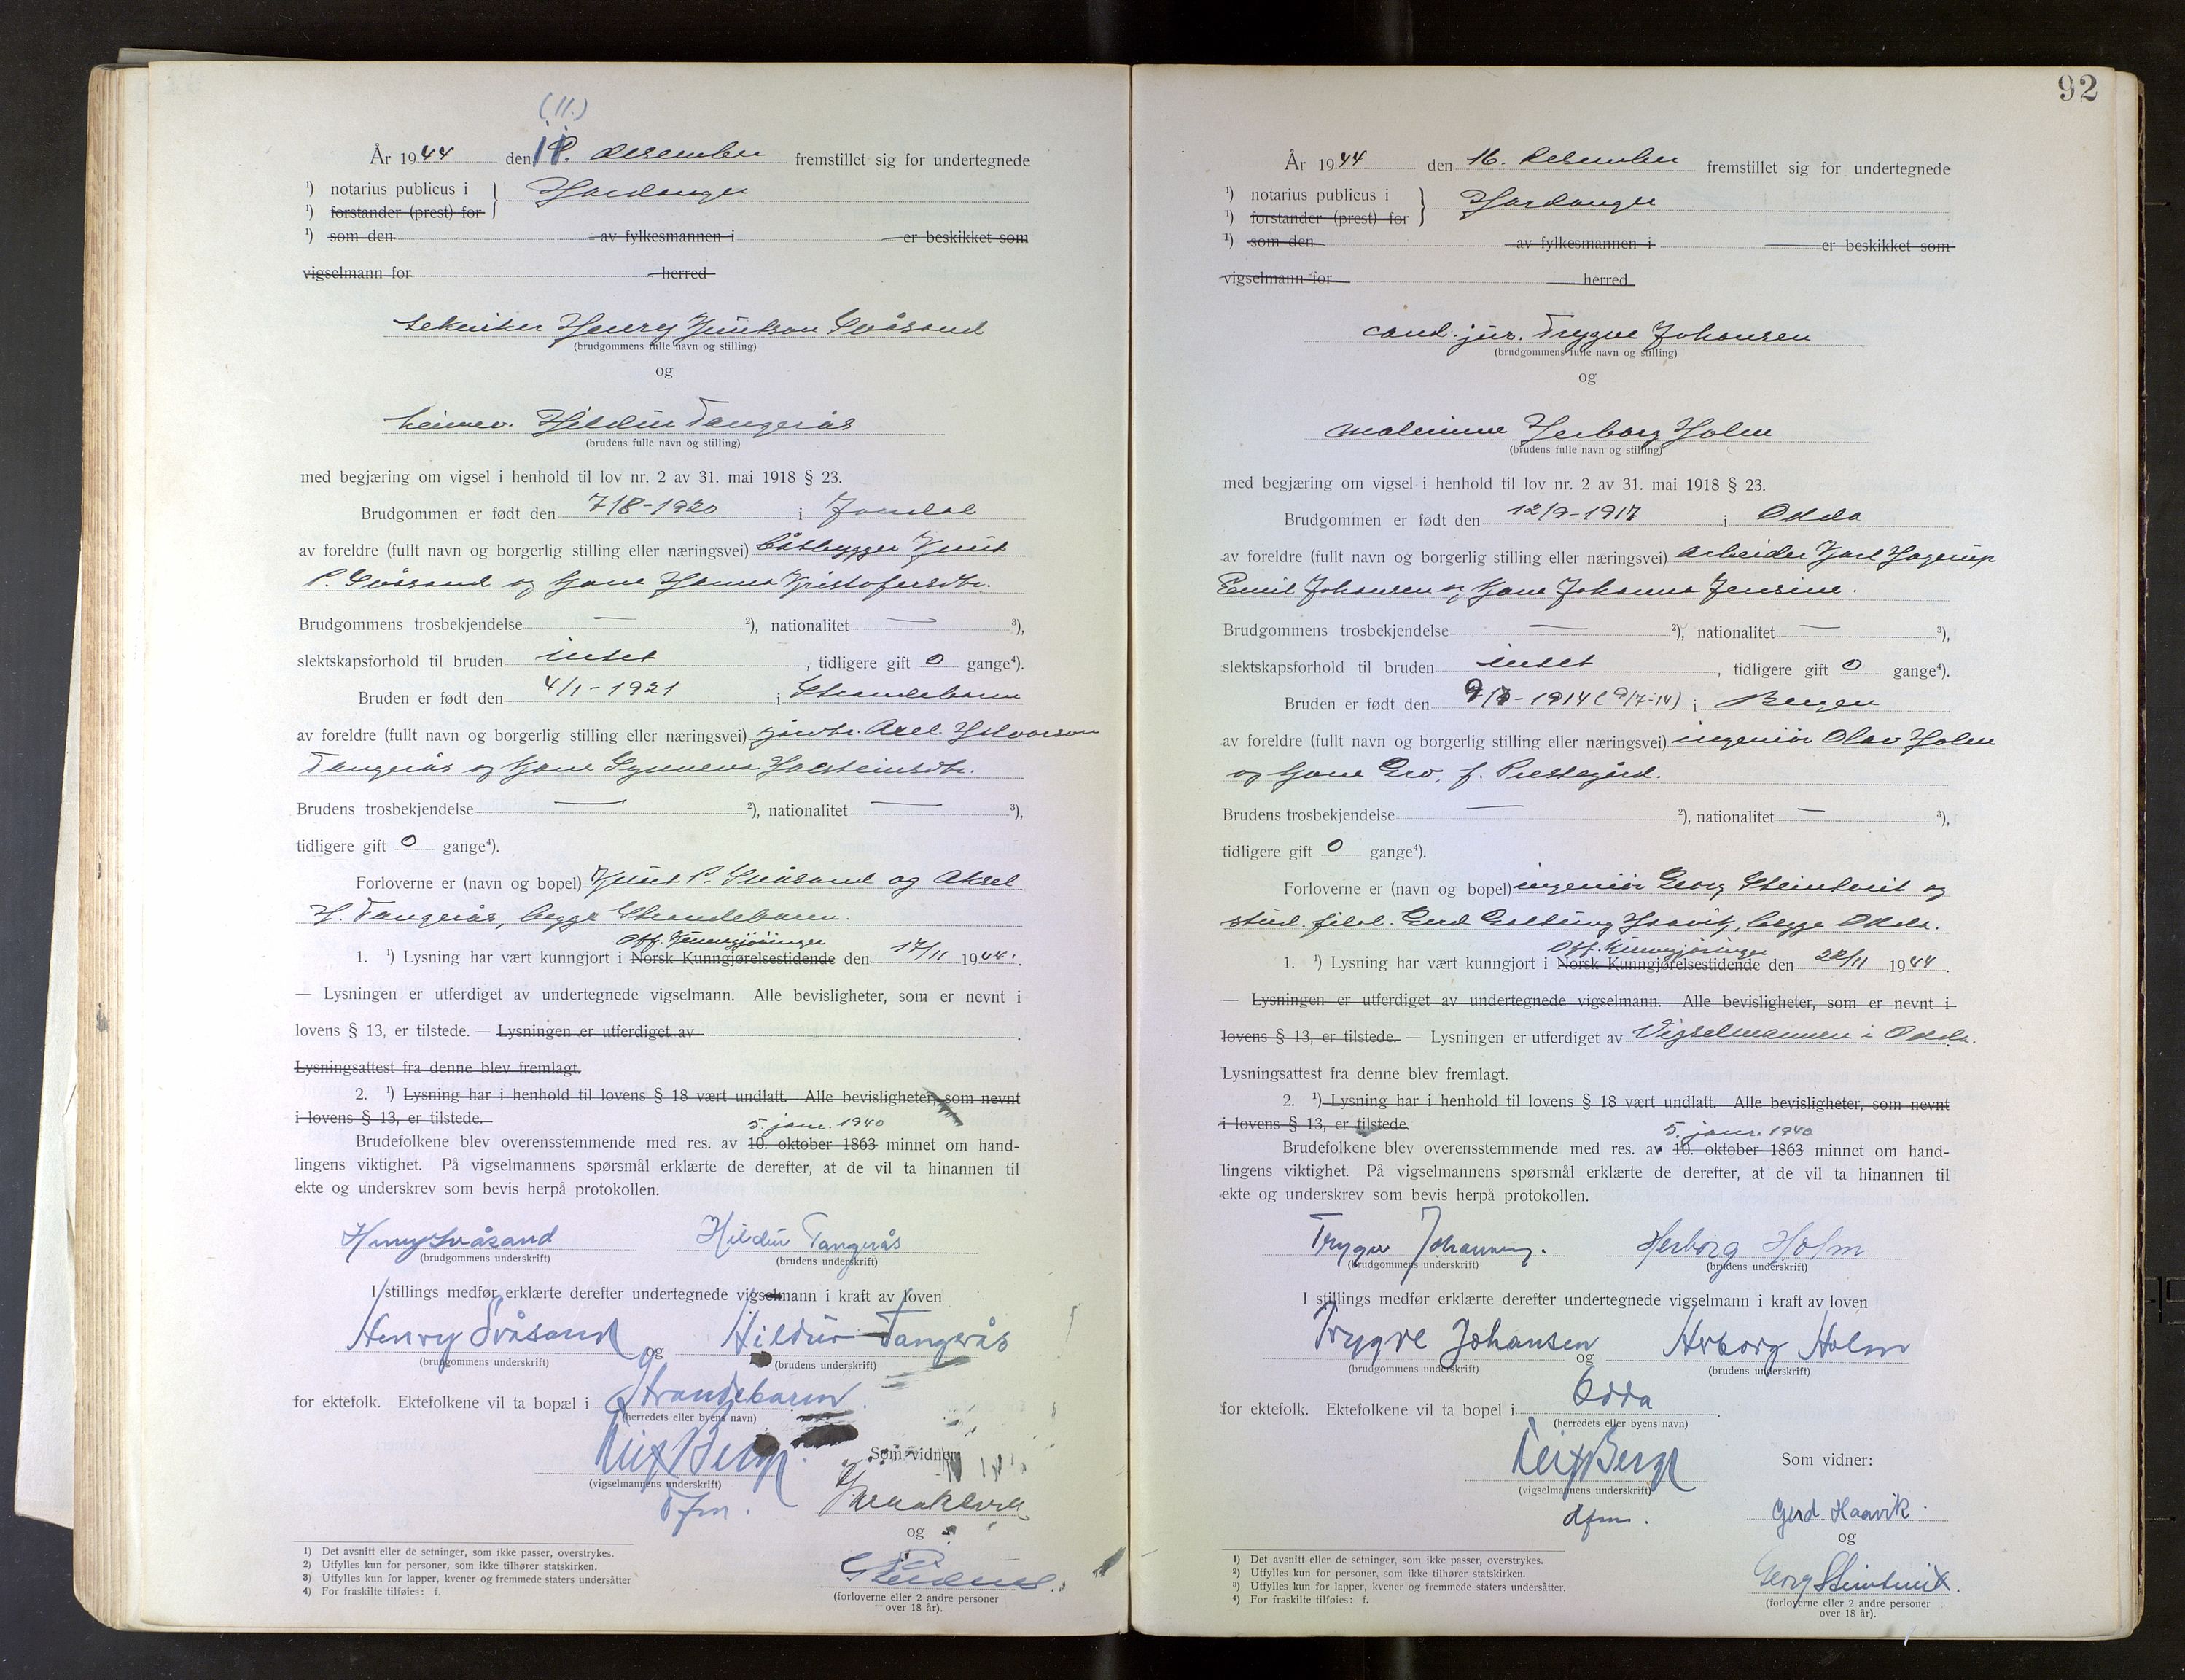 (11.)
År 1944 den 11. desember fremstillet sig for undertegnede
1) notarius publicus i } Hardanger
1) forstander (prest) for
1) som den av fylkesmannen i er beskikket som
vigselmann for herred
tekniker Henry Knutson Svåsand
(brudgommens fulle navn og stilling)
og
heimev. Hildur Tangerås
(brudens fulle navn og stilling)
med begjæring om vigsel i henhold til lov nr. 2 av 31. mai 1918 § 23.
Brudgommen er født den 7/8-1920 i Jondal
av foreldre (fullt navn og borgerlig stilling eller næringsvei) båtbygger Knut
P. Svåsand og kone Hanna Kristofersdtr.
Brudgommens trosbekjendelse — 2), nationalitet — 3),
slektskapsforhold til bruden intet, tidligere gift 0 gange4).
Bruden er født den 4/1-1921 i Strandebarm
av foreldre (fullt navn og borgerlig stilling eller næringsvei) gårdbr. Axel Halvorson
Tangerås og kone Synneva Halsteinsdtr.
Brudens trosbekjendelse — 2), nationalitet — 3),
tidligere gift 0 gange4).
Forloverne er (navn og bopel) Knut P. Svåsand og Aksel
H. Tangerås, begge Strandebarm.
Off. Kunngjøringer
1. 1) Lysning har vært kunngjort i Norsk Kunngjørelsestidende den 17/11 1944.
— Lysningen er utferdiget av undertegnede vigselmann. Alle bevisligheter, som er nevnt i
lovens § 13, er tilstede. — Lysningen er utferdiget av .
Lysningsattest fra denne blev fremlagt.
2. 1) Lysning har i henhold til lovens § 18 vært undlatt. Alle bevisligheter, som nevnt
i lovens § 13, er tilstede.
5. jan. 1940
Brudefolkene blev overensstemmende med res. av 10. oktober 1863 minnet om hand-
lingens viktighet. På vigselmannens spørsmål erklærte de derefter, at de vil ta hinannen til
ekte og underskrev som bevis herpå protokollen.
Henry Svåsand Hildur Tangerås
(brudgommens underskrift) (brudens underskrift)
I stillings medfør erklærte derefter undertegnede vigselmann i kraft av loven
Henry Svåsand og Hildur Tangerås
(brudgommens underskrift) (brudens underskrift)
for ektefolk. Ektefolkene vil ta bopæl i Strandebarm.
(herredets eller byens navn)
Leif Berge Som vidner:
(vigselmannens underskrift)
dfm.
og
1) Det avsnitt eller de setninger, som ikke passer, overstrykes.
2) Utfylles kun for personer, som ikke tilhører statskirken.
3) Utfylles kun for lapper, kvener og fremmede staters undersåtter
4) For fraskilte tilføies: f.
(forloverne eller 2 andre personer
over 18 år).
92
År 1944 den 16. desember fremstillet sig for undertegnede
1) notarius publicus i } Hardanger
1) forstander (prest) for
1) som den av fylkesmannen i er beskikket som
vigselmann for herred
cand. jur. Trygve Johansen
(brudgommens fulle navn og stilling)
og
malerinne Herborg Holm
(brudens fulle navn og stilling)
med begjæring om vigsel i henhold til lov nr. 2 av 31. mai 1918 § 23.
Brudgommen er født den 12/9-1917 i Odda
av foreldre (fullt navn og borgerlig stilling eller næringsvei) arbeider Karl Hagerup
Emil Johansen og kone Johanna Jensine.
Brudgommens trosbekjendelse — 2), nationalitet — 3),
slektskapsforhold til bruden intet, tidligere gift 0 gange4).
Bruden er født den 9/7-1914 (9/7-14) i Bergen
av foreldre (fullt navn og borgerlig stilling eller næringsvei) ingeniør Olav Holm
og kone Gro, f. Prestegård.
Brudens trosbekjendelse — 2), nationalitet — 3),
tidligere gift 0 gange4).
Forloverne er (navn og bopel) ingeniør Georg Steintveit og
stud. filol. Gerd Galtung Haavik, begge Odda.
Off. Kunngjøringer
1. 1) Lysning har vært kunngjort i Norsk Kunngjørelsestidende den 22/11 1944.
— Lysningen er utferdiget av undertegnede vigselmann. Alle bevisligheter, som er nevnt i
lovens § 13, er tilstede. — Lysningen er utferdiget av Vigselmannen i Odda.
Lysningsattest fra denne blev fremlagt.
2. 1) Lysning har i henhold til lovens § 18 vært undlatt. Alle bevisligheter, som nevnt
i lovens § 13, er tilstede.
5. jan. 1940
Brudefolkene blev overensstemmende med res. av 10. oktober 1863 minnet om hand-
lingens viktighet. På vigselmannens spørsmål erklærte de derefter, at de vil ta hinannen til
ekte og underskrev som bevis herpå protokollen.
Trygve Johansen. Herborg Holm
(brudgommens underskrift) (brudens underskrift)
I stillings medfør erklærte derefter undertegnede vigselmann i kraft av loven
Trygve Johansen og Herborg Holm
(brudgommens underskrift) (brudens underskrift)
for ektefolk. Ektefolkene vil ta bopel i Odda.
(herredets eller byens navn)
Leif Berge Som vidner:
(vigselmannens underskrift)
dfm.
Gerd Haavik
og
Georg Steintveit.
1) Det avsnitt eller de setninger, som ikke passer, overstrykes.
2) Utfylles kun for personer, som ikke tilhører statskirken.
3) Utfylles kun for lapper, kvener og fremmede staters undersåtter.
4) For fraskilte tilføies: f.
(forloverne eller 2 andre personer
over 18 år).